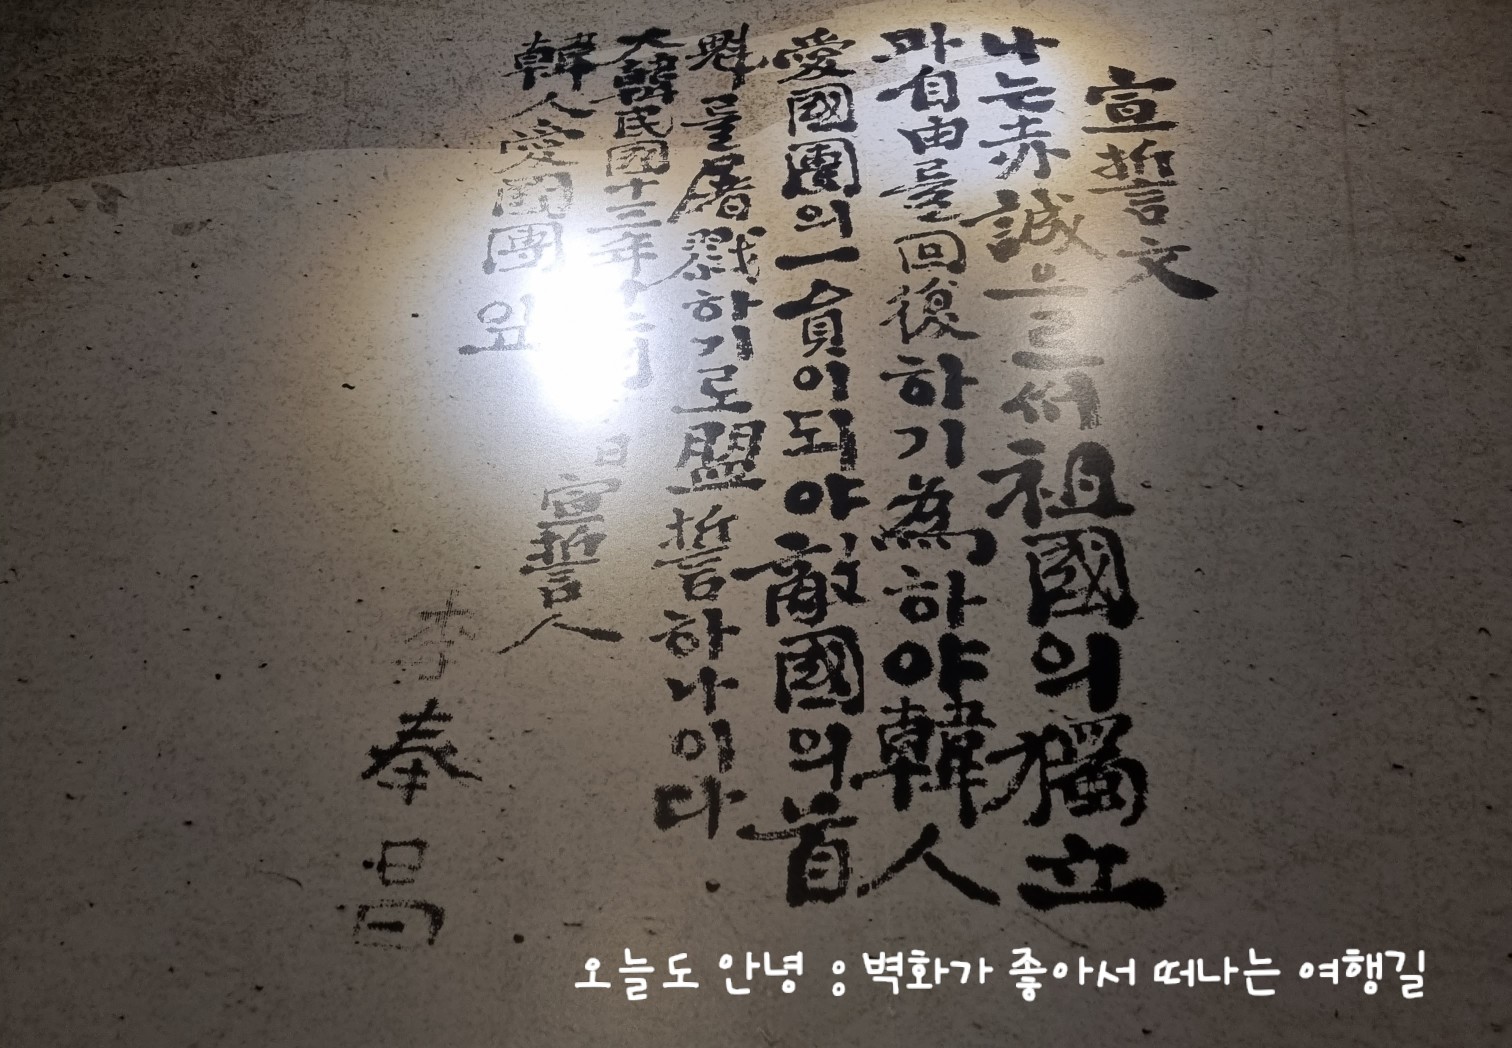 宣誓文
나는赤誠으로써祖國의獨立
과自由를回復하기爲하야韓人
愛國團의一員이되야敵國의首
魁를屠戮하기로盟誓하나이다.
大韓民國十三年十二月 日宣誓人
韓人愛國團앞
李奉昌
오늘도 안녕 : 벽화가 좋아서 떠나는 여행길